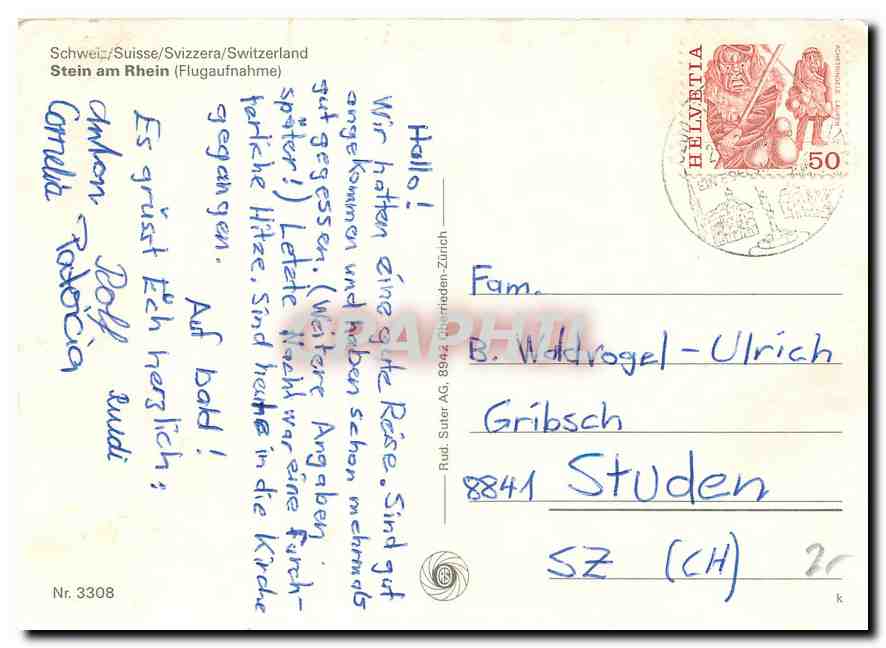 Schweiz/Suisse/Svizzera/Switzerland
Stein am Rhein (Flugaufnahme)
Hallo!
Wir hatten eine gute Reise. Sind gut
angekommen und haben schon mehrmals
gut gegessen. (Weitere Angaben
später!) Letzte Nacht war eine fürch-
terliche Hitze. Sind heute in die Kirche
gegangen.
Auf bald!
Es grüsst Euch herzlich:
Anton Rolf Ruedi
Cornelia Patricia
Rud. Suter AG, 8942 Oberrieden-Zürich
HELVETIA
ACHETRINGELE LAUPEN
50
Fam.
B. Waldvogel-Ulrich
Gribsch
8841 Studen
SZ (CH)
2.-
Nr. 3308
k
DELCAMPE